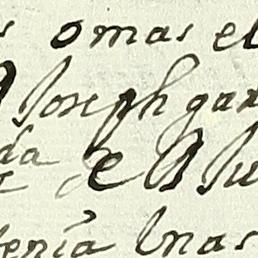 omas el
Joseph gar
da de
tenia Unas